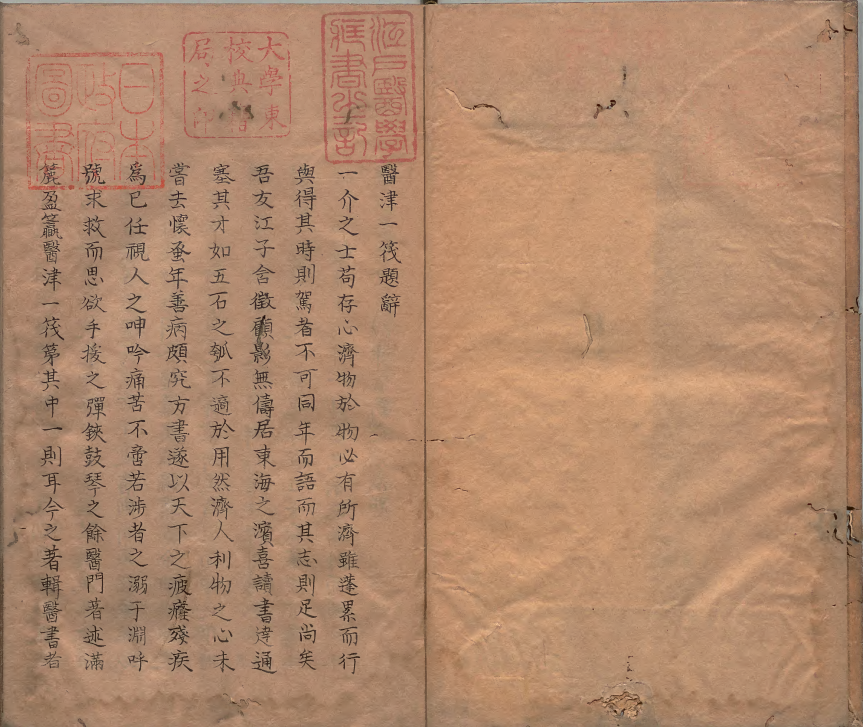 醫津一筏題辭
一介之士苟存心濟物於物必有所濟雖蓬累而行
與得其時則駕者不可同年而語而其志則足尚矣
吾友江子含徵顧影無儔居東海之濱喜讀書違通
塞其才如五石之瓠不適於用然濟人利物之心未
嘗去懷蚤年善病頗究方書遂以天下之疲癃殘疾
爲已任視人之呻吟痛苦不啻若涉者之溺于淵呼
號求救而思欲手援之彈鋏鼓琴之餘醫門著述滿
簏盈籯醫津一筏第其中一則耳今之著輯醫書者
江戶醫學
藏書之記
大學東
校典籍
局之印
日本
政府
圖書